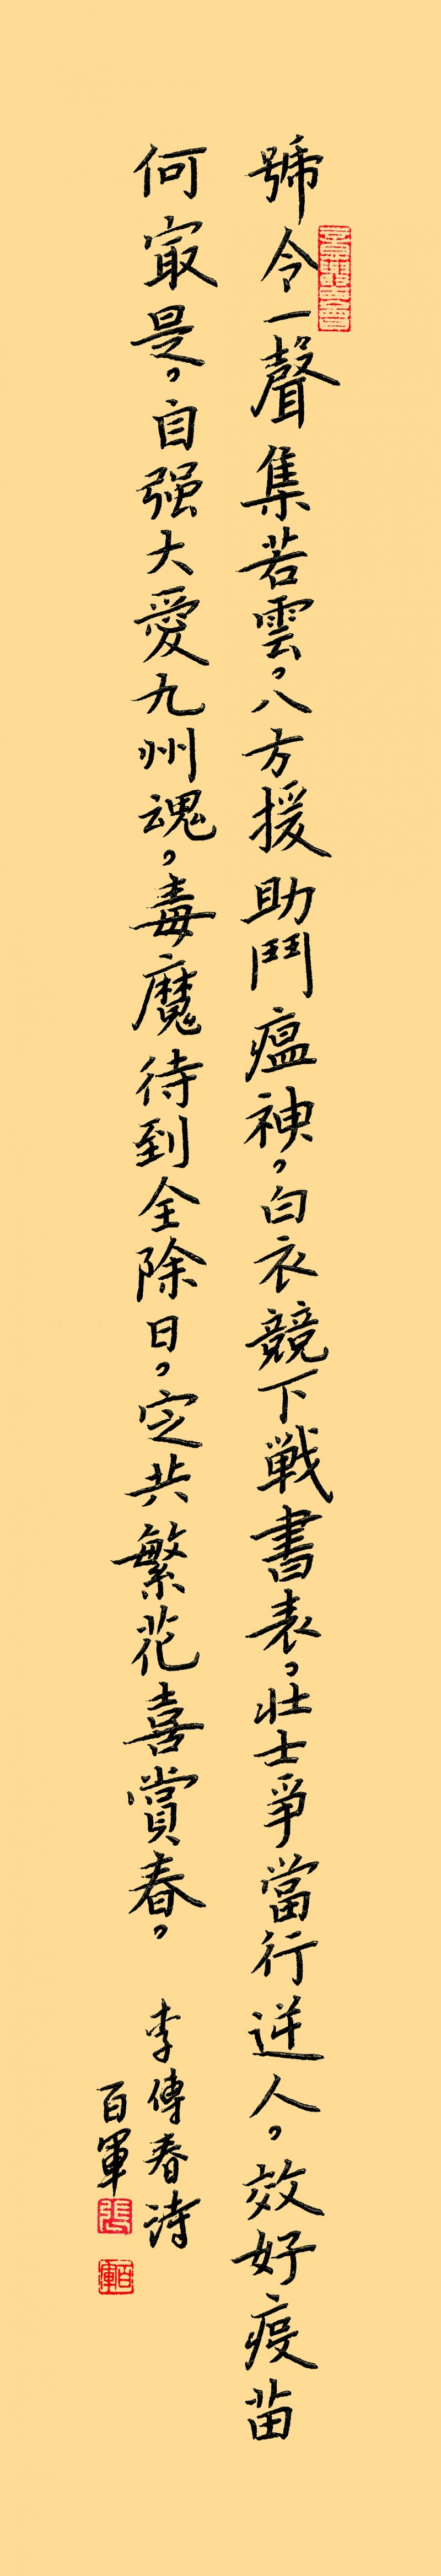 號令一聲集若雲，八方援助鬥瘟神，白衣競下戰書表，壯士爭當行逆人，效好疫苗
何寂是，自强大愛九州魂，毒魔待到全除日，定共繁花喜賞春，
李傳春詩
百軍
張
百軍